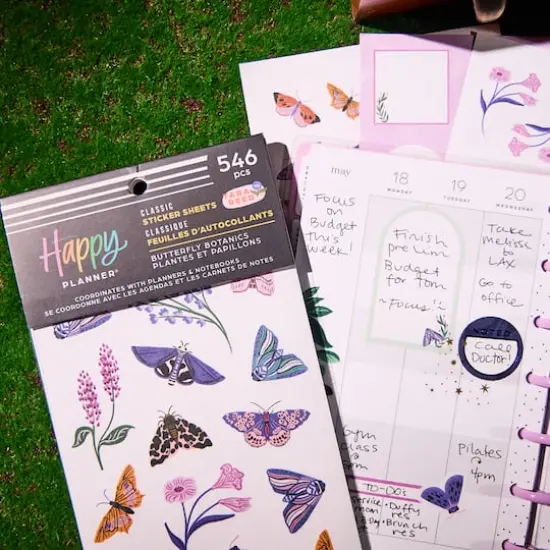 546
pcs
CLASSIC
STICKER SHEETS
CLASSIQUE
FEUILLES D'AUTOCOLLANTS
BUTTERFLY BOTANICS
PLANTES ET PAPILLONS
COORDINATES WITH PLANNERS & NOTEBOOKS
SE COORDONNE AVEC LES AGENDAS ET LES CARNETS DE NOTES
Happy
PLANNER®
may
18
MONDAY
19
TUESDAY
20
WEDNESDAY
Focus
on
Budget
this
week!
Finish
prelim
Budget
for Tom
~Focus!~
Take
Melissa
to
LAX
Go to
office
NOTED
Call
Doctor!
Gym
Class
4pm
Pilates
4pm
TO-DO's
Duffy
res
Brunch
res